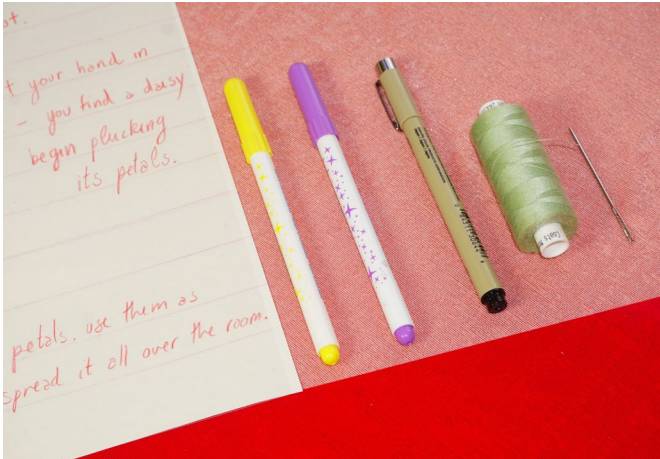 ot.
t your hand in
- you find a daisy
begin plucking
its petals.
petals. use them as
spread it all over the room.
Coats